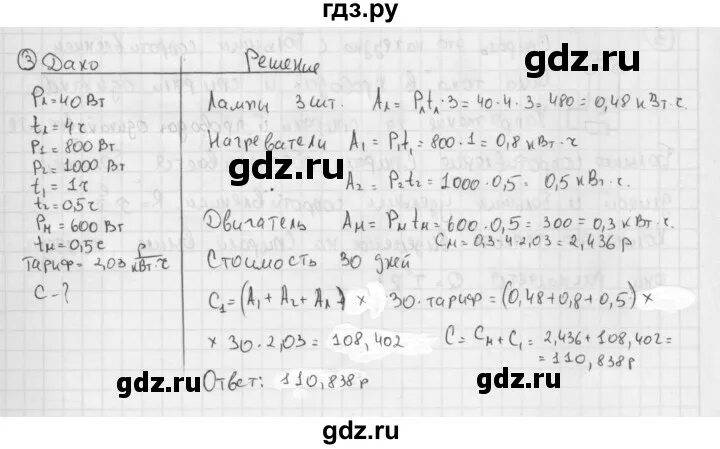 гдз.ру
③ Дано
Решение
Pл=40 Вт
tл=4ч
P1=800 Вт
P2=1000 Вт
t1=1ч
t2=0,5ч
Pм=600 Вт
tм=0,5ч
Тариф=2,03 р/кВт·ч
C-?
Лампы 3 шт. Aл=Pлtл·3=40·4·3=480=0,48 кВт·ч
Нагреватели A1=P1t1=800·1=0,8 кВт·ч
A2=P2t2=1000·0,5=0,5 кВт·ч.
Двигатель Aм=Pмtм=600·0,5=300=0,3 кВт·ч
Cм=0,3·4·2,03=2,436 р
Стоимость 30 дней
C1=(A1+A2+Aл) × 30·тариф=(0,48+0,8+0,5) ×
× 30·2,03=108,402
C=Cм+C1=2,436+108,402=
=110,838р
Ответ: 110,838р
gdz.ru
gdz.ru
gdz.ru
gdz.ru
gdz.ru
gdz.ru
gdz.ru
gdz.ru